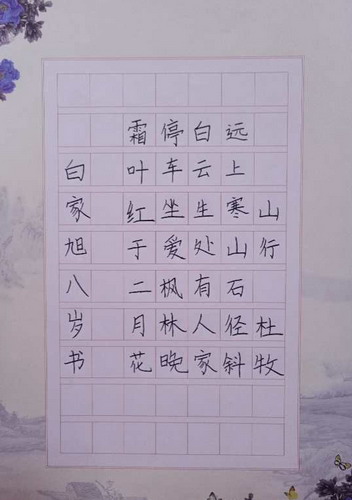 山行 杜牧
远上寒山石径斜
白云生处有人家
停车坐爱枫林晚
霜叶红于二月花
白家旭八岁书